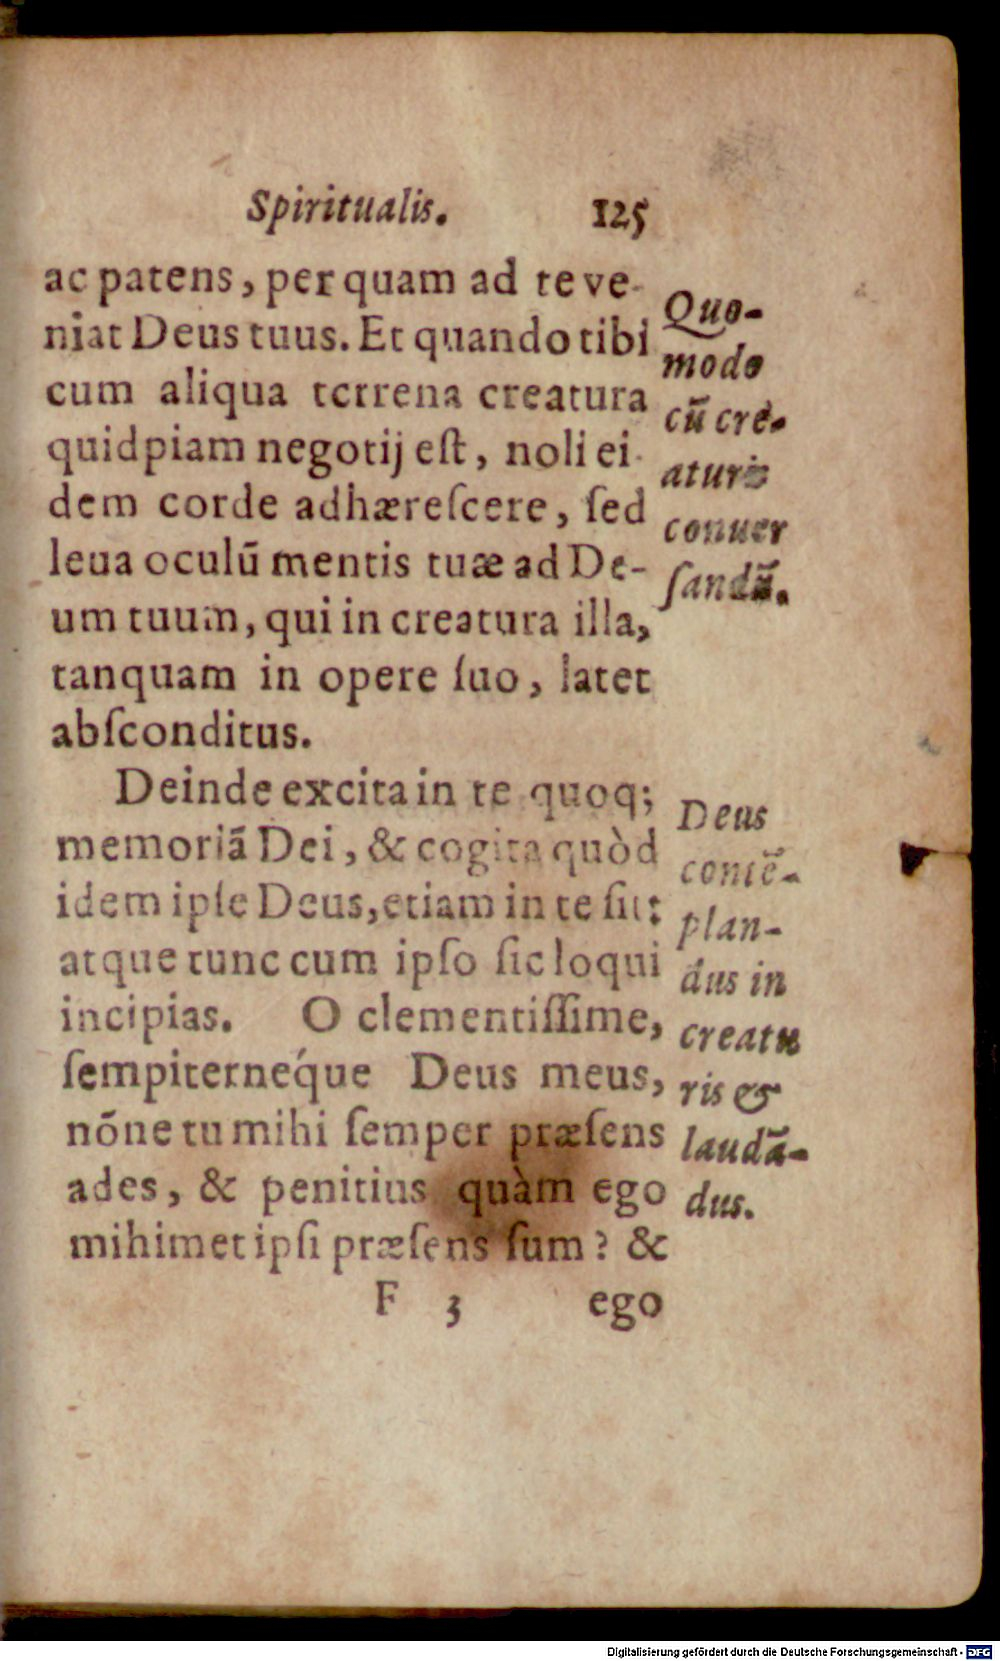 Spiritualis. 125
ac patens, per quam ad te ve-
niat Deus tuus. Et quando tibi
cum aliqua terrena creatura
quidpiam negotij eſt, noli ei-
dem corde adhæreſcere, ſed
leua oculū mentis tuæ ad De-
um tuum, qui in creatura illa,
tanquam in opere ſuo, latet
abſconditus.
Quo-
modo
cū cre-
aturis
conuer
ſandū.
Deinde excita in te quoq;
memoriã Dei, & cogita quòd
idem ipſe Deus, etiam in te ſit:
atque tunc cum ipſo ſic loqui
incipias. O clementiſſime,
ſempiterneq́ue Deus meus,
nõne tu mihi ſemper præſens
ades, & penitius quàm ego
mihimet ipſi præſens ſum? &
Deus
contẽ-
plan-
dus in
creatu
ris &
laudã-
dus.
F 3 ego
Digitalisierung gefördert durch die Deutsche Forschungsgemeinschaft - DFG